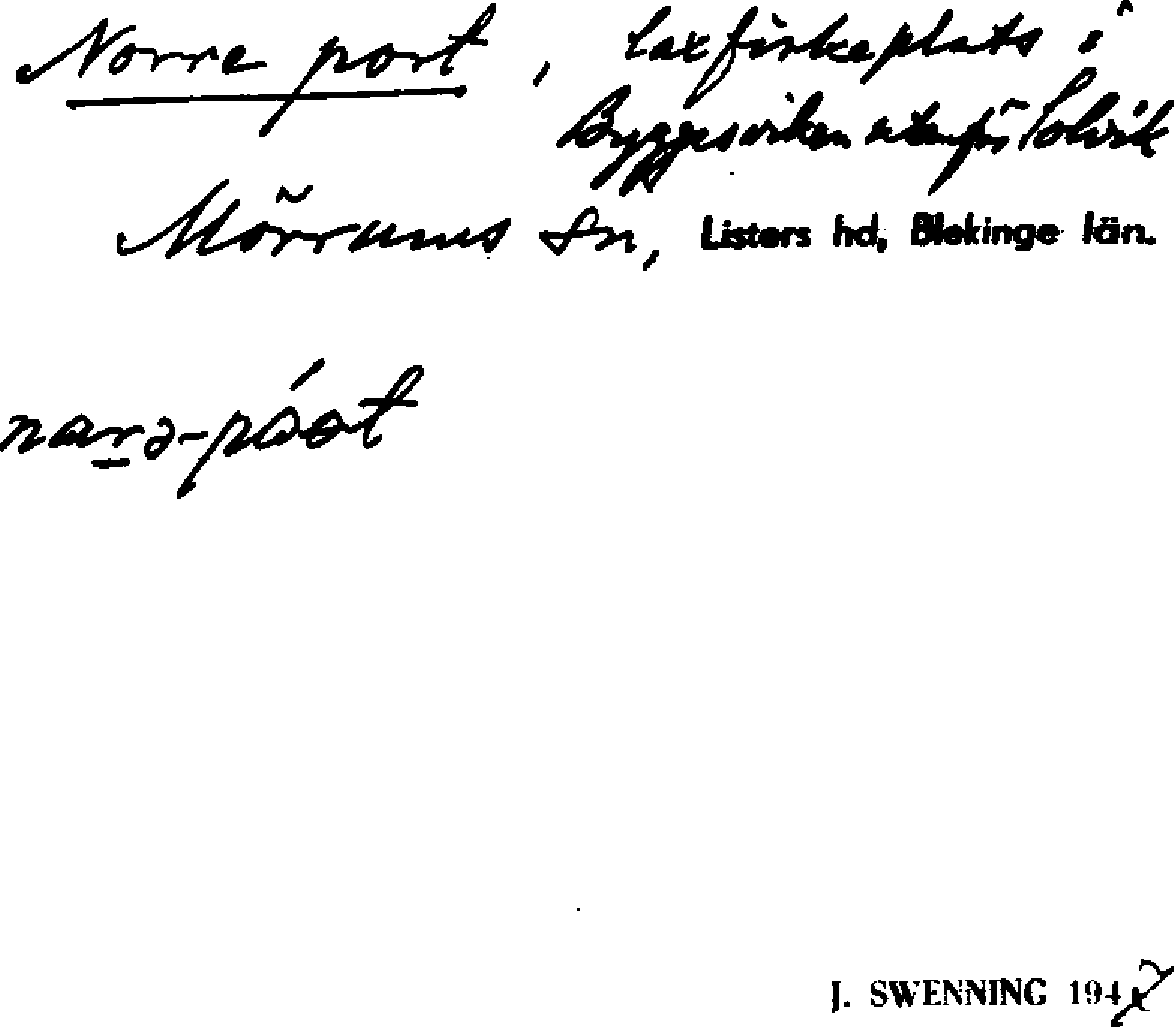 Norre port, laxfiskeplats i
Byggesviken utanför Solvik
Mörrums sn, Listers hd, Blekinge län.
narə-póat
J. SWENNING 194